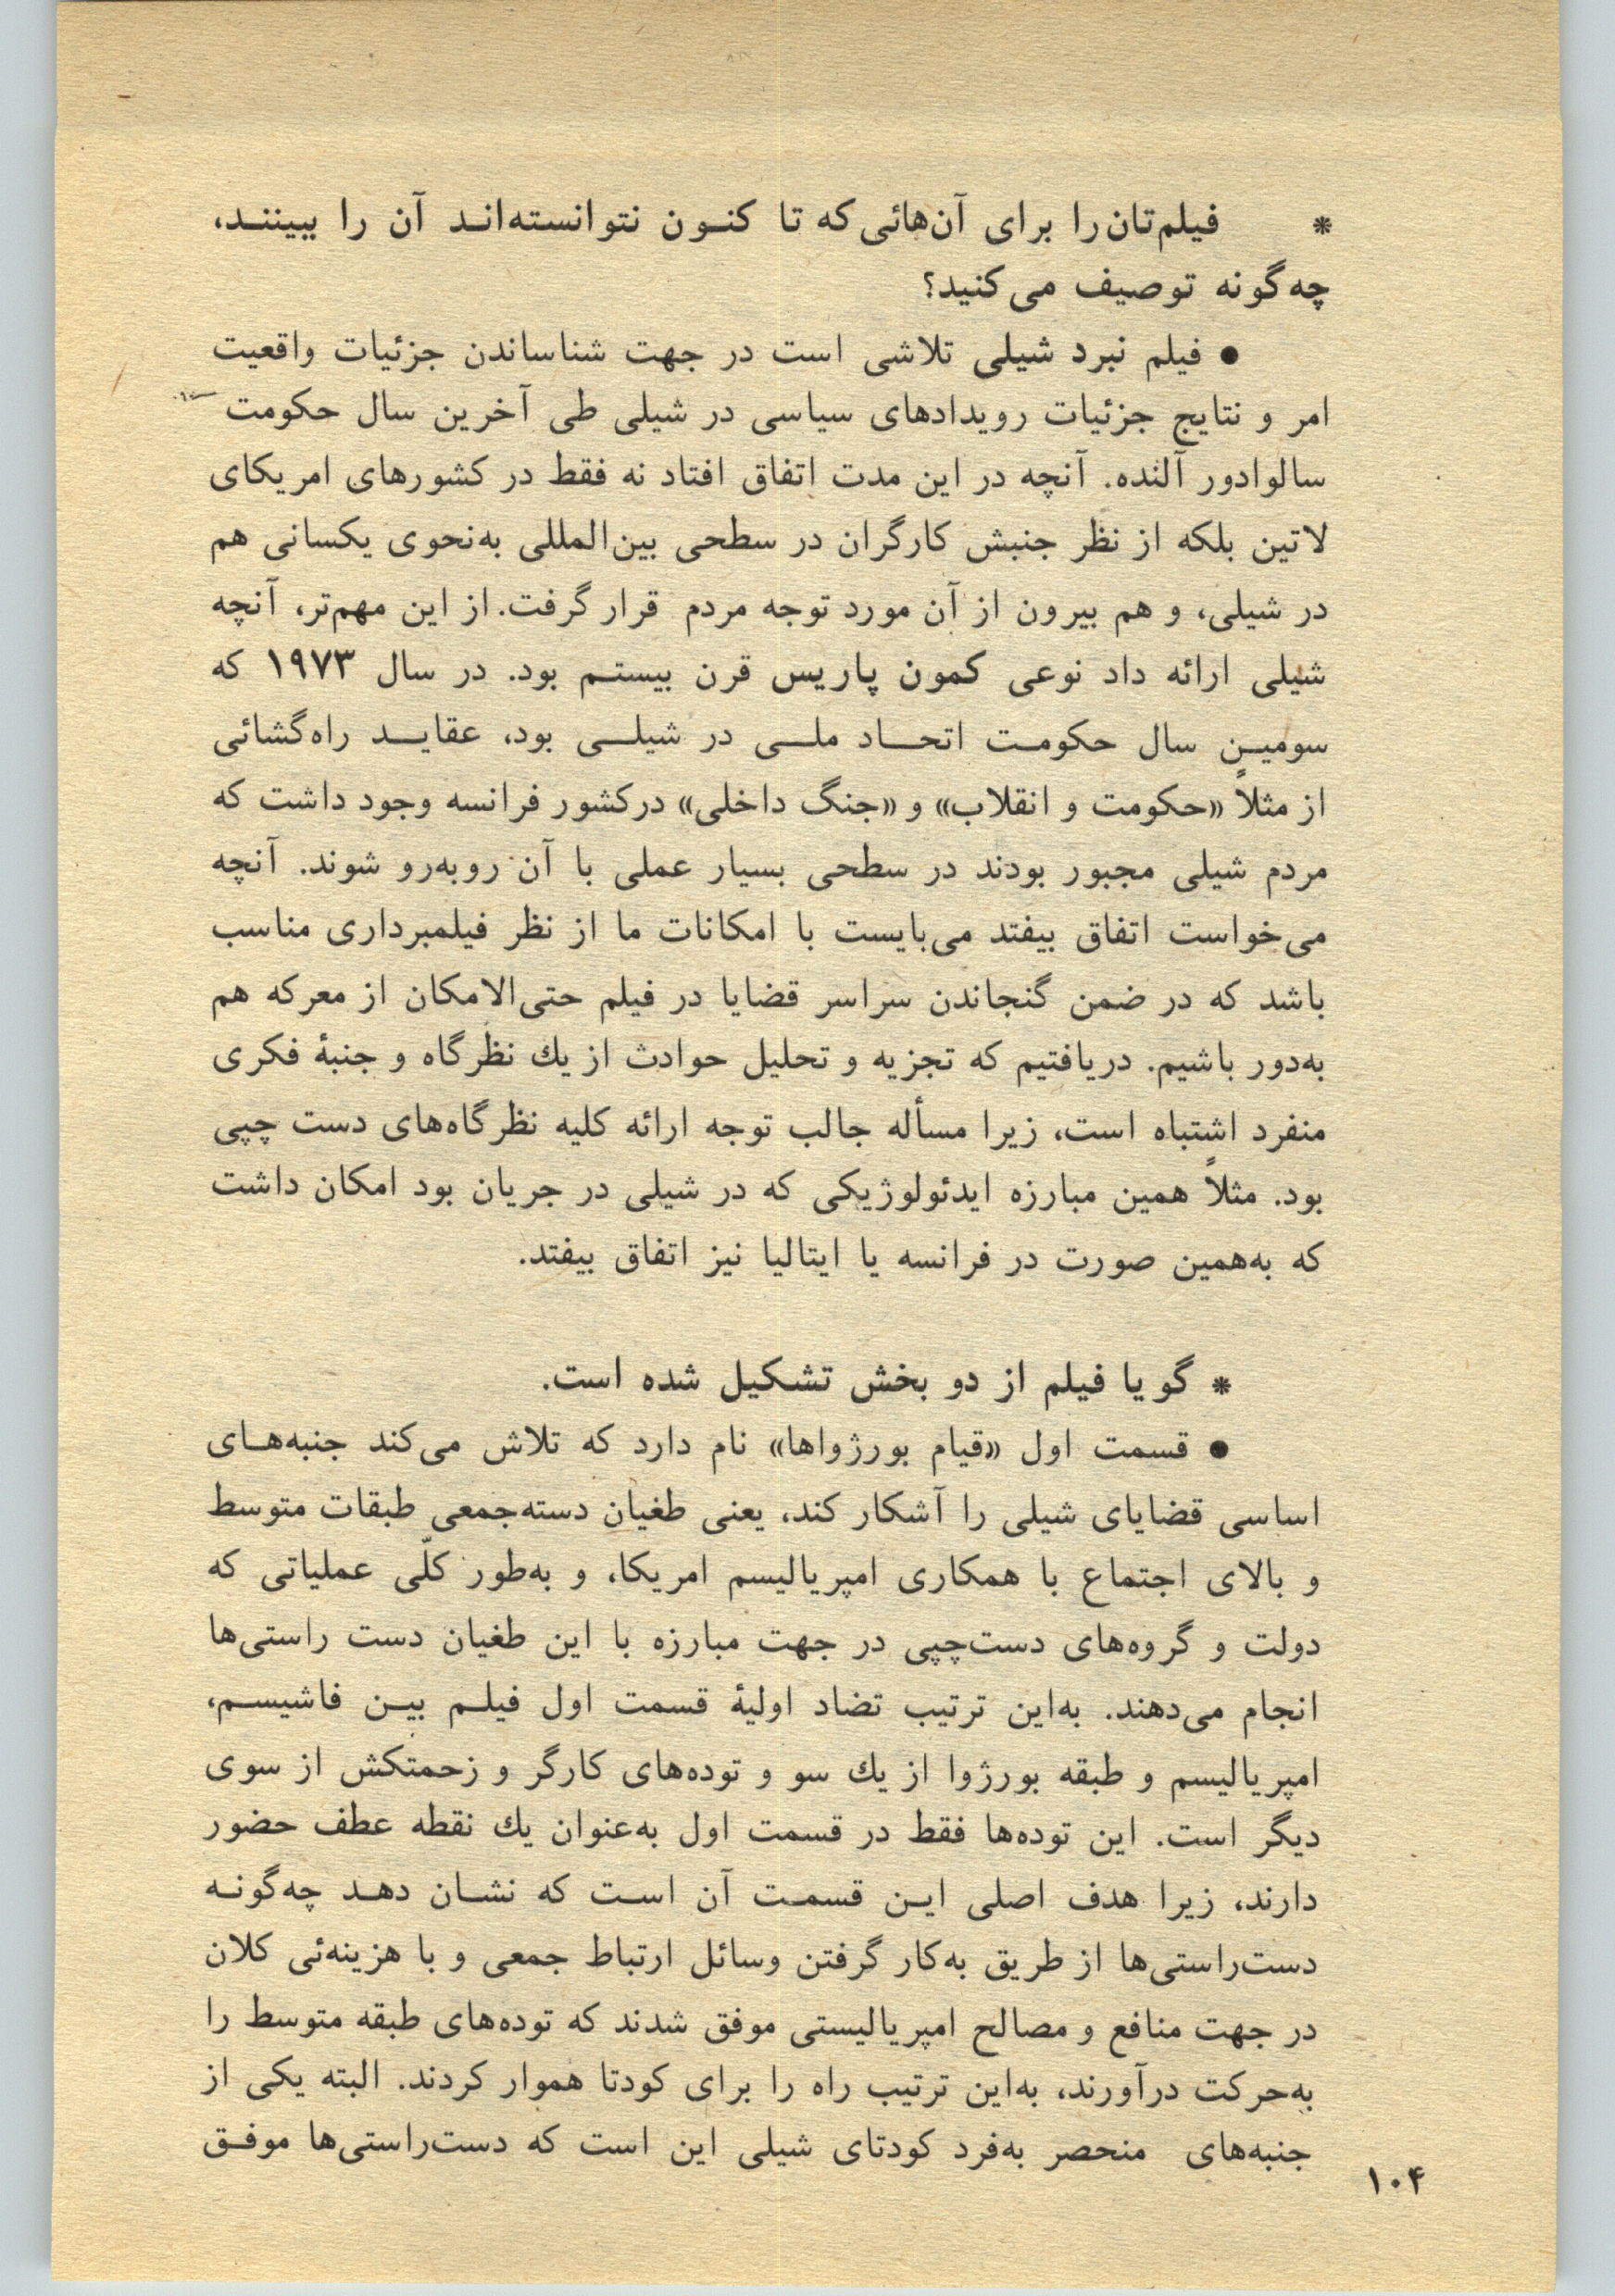 * فیلم‌تان را برای آن‌هائی که تا کنـون نتوانسته‌انـد آن را ببیننـد،
چه‌گونه توصیف می‌کنید؟
● فیلم نبرد شیلی تلاشی است در جهت شناساندن جزئیات واقعیت
امر و نتایج جزئیات رویدادهای سیاسی در شیلی طی آخرین سال حکومت
سالوادور آلنده. آنچه در این مدت اتفاق افتاد نه فقط در کشورهای امریکای
لاتین بلکه از نظر جنبش کارگران در سطحی بین‌المللی به‌نحوی یکسانی هم
در شیلی، و هم بیرون از آن مورد توجه مردم قرار گرفت. از این مهم‌تر، آنچه
شیلی ارائه داد نوعی کمون پاریس قرن بیستـم بود. در سال ۱۹۷۳ که
سومیـن سال حکومـت اتحـاد ملـی در شیلـی بود، عقایـد راه‌گشائی
از مثلاً «حکومت و انقلاب» و «جنگ داخلی» درکشور فرانسه وجود داشت که
مردم شیلی مجبور بودند در سطحی بسیار عملی با آن روبه‌رو شوند. آنچه
می‌خواست اتفاق بیفتد می‌بایست با امکانات ما از نظر فیلمبرداری مناسب
باشد که در ضمن گنجاندن سراسر قضایا در فیلم حتی‌الامکان از معرکه هم
به‌دور باشیم. دریافتیم که تجزیه و تحلیل حوادث از یك نظرگاه و جنبهٔ فکری
منفرد اشتباه است، زیرا مسأله جالب توجه ارائه کلیه نظرگاه‌های دست چپی
بود. مثلاً همین مبارزه ایدئولوژیکی که در شیلی در جریان بود امکان داشت
که به‌همین صورت در فرانسه یا ایتالیا نیز اتفاق بیفتد.
* گویا فیلم از دو بخش تشکیل شده است.
● قسمت اول «قیام بورژواها» نام دارد که تلاش می‌کند جنبه‌هـای
اساسی قضایای شیلی را آشکار کند، یعنی طغیان دسته‌جمعی طبقات متوسط
و بالای اجتماع با همکاری امپریالیسم امریکا، و به‌طور کلّی عملیاتی که
دولت و گروه‌های دست‌چپی در جهت مبارزه با این طغیان دست راستی‌ها
انجام می‌دهند. به‌این ترتیب تضاد اولیهٔ قسمت اول فیلـم بیـن فاشیسـم،
امپریالیسم و طبقه بورژوا از یك سو و توده‌های کارگر و زحمتکش از سوی
دیگر است. این توده‌ها فقط در قسمت اول به‌عنوان یك نقطه عطف حضور
دارند، زیرا هدف اصلی ایـن قسمـت آن اسـت که نشـان دهـد چه‌گونـه
دست‌راستی‌ها از طریق به‌کار گرفتن وسائل ارتباط جمعی و با هزینه‌ئی کلان
در جهت منافع و مصالح امپریالیستی موفق شدند که توده‌های طبقه متوسط را
به‌حرکت درآورند، به‌این ترتیب راه را برای کودتا هموار کردند. البته یکی از
جنبه‌های منحصر به‌فرد کودتای شیلی این است که دست‌راستی‌ها موفـق
۱۰۴